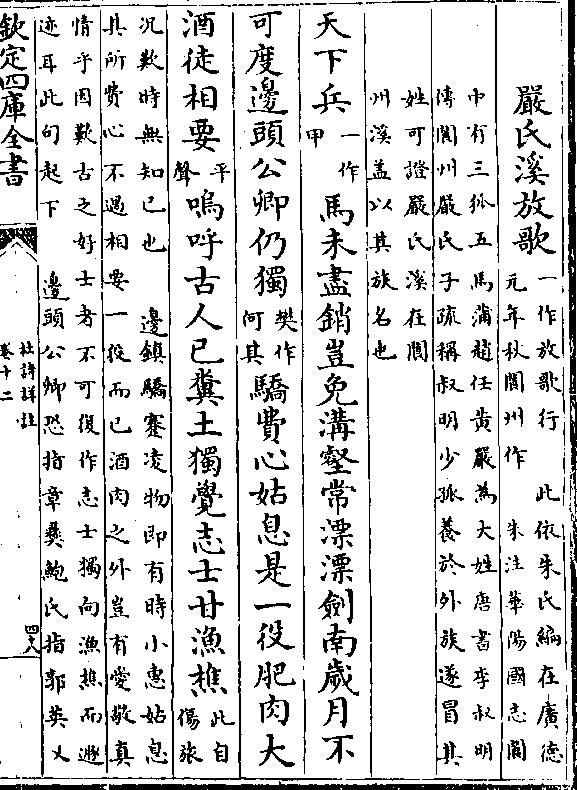 嚴氏溪放歌一作放歌行 此依朱氏編在廣德
元年秋閬州作 朱注華陽國志閬
中有三狐五馬蒲趙任黄嚴為大姓唐書李叔明
傳閬州嚴氏子疏稱叔明少孤養於外族遂冒其
姓可證嚴氏溪在閬
州溪蓋以其族名也
天下兵一作甲馬未盡銷豈免溝壑常漂漂劍南歲月不
可度邊頭公卿仍獨樊作何其驕費心姑息是一役肥肉大
酒徒相要平聲嗚呼古人已糞土獨覺志士甘漁樵此自傷旅
况歎時無知己也 邊鎮驕蹇凌物即有時小惠姑息
其所費心不過相要一役而已酒肉之外豈有愛敬真
情乎因歎古之好士者不可復作志士獨向漁樵而遯
迹耳此句起下 邊頭公卿恐指章彝鮑氏指郭英乂
欽定四庫全書
杜詩詳註
卷十二
四八